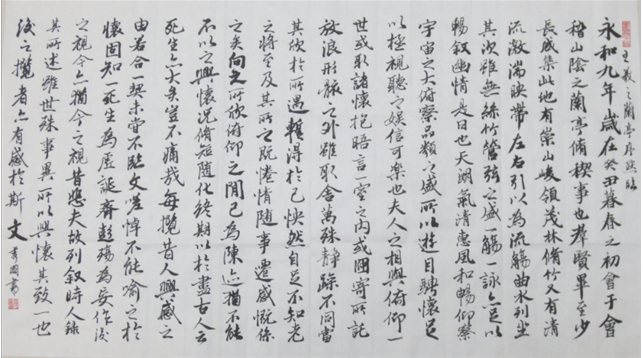 王羲之蘭亭序
永和九年歲在癸丑暮春之初會于會
稽山陰之蘭亭脩稧事也羣賢畢至少
長咸集此地有崇山峻領茂林脩竹又有清
流激湍暎帶左右引以為流觴曲水列坐
其次雖無絲竹管弦之盛一觴一詠亦足以
暢叙幽情是日也天朗氣清惠風和暢仰觀
宇宙之大俯察品類之盛所以遊目騁懷足
以極視聽之娛信可樂也夫人之相與俯仰一
世或取諸懷抱晤言一室之內或因寄所託
放浪形骸之外雖取舍萬殊靜躁不同當
其欣於所遇暫得於己快然自足不知老
之將至及其所之既惓情隨事遷感慨係
之矣向之所欣俯仰之間已為陳迹猶不能
不以之興懷況脩短隨化終期於盡古人云
死生亦大矣豈不痛哉每攬昔人興感之
由若合一契未嘗不臨文嗟悼不能喻之於
懷固知一死生為虛誕齊彭殤為妄作後
之視今亦猶今之視昔悲夫故列叙時人錄
其所述雖世殊事異所以興懷其致一也
後之攬者亦有感於斯文